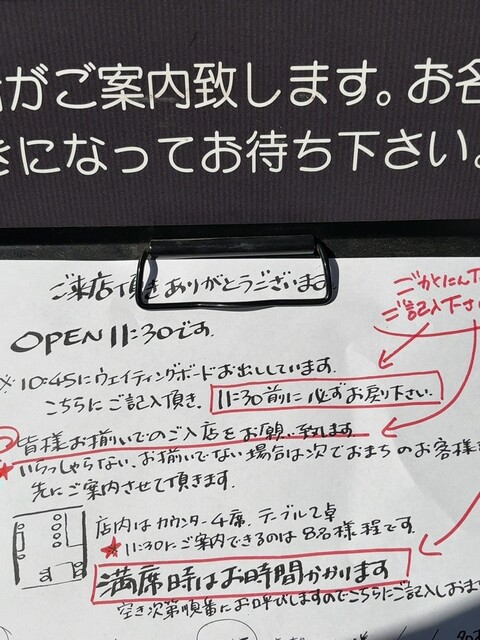 がご案内致します。お名
きになってお待ち下さい。
ご来店頂きありがとうございます。
ごかくにん下
ご記入下さい
OPEN 11:30です。
※10:45にウェイティングボードお出ししています。
こちらにご記入頂き、11:30前に必ずお戻り下さい。
皆様お揃いでのご入店をお願い致します
★いらっしゃらない、お揃いでない場合は次でおまちのお客様を
先にご案内させて頂きます。
店内はカウンター4席、テーブル2卓
★11:30にご案内できるのは8名様程です。
満席時はお時間かかります
空き次第順番にお呼びしますのでこちらにご記入しおま